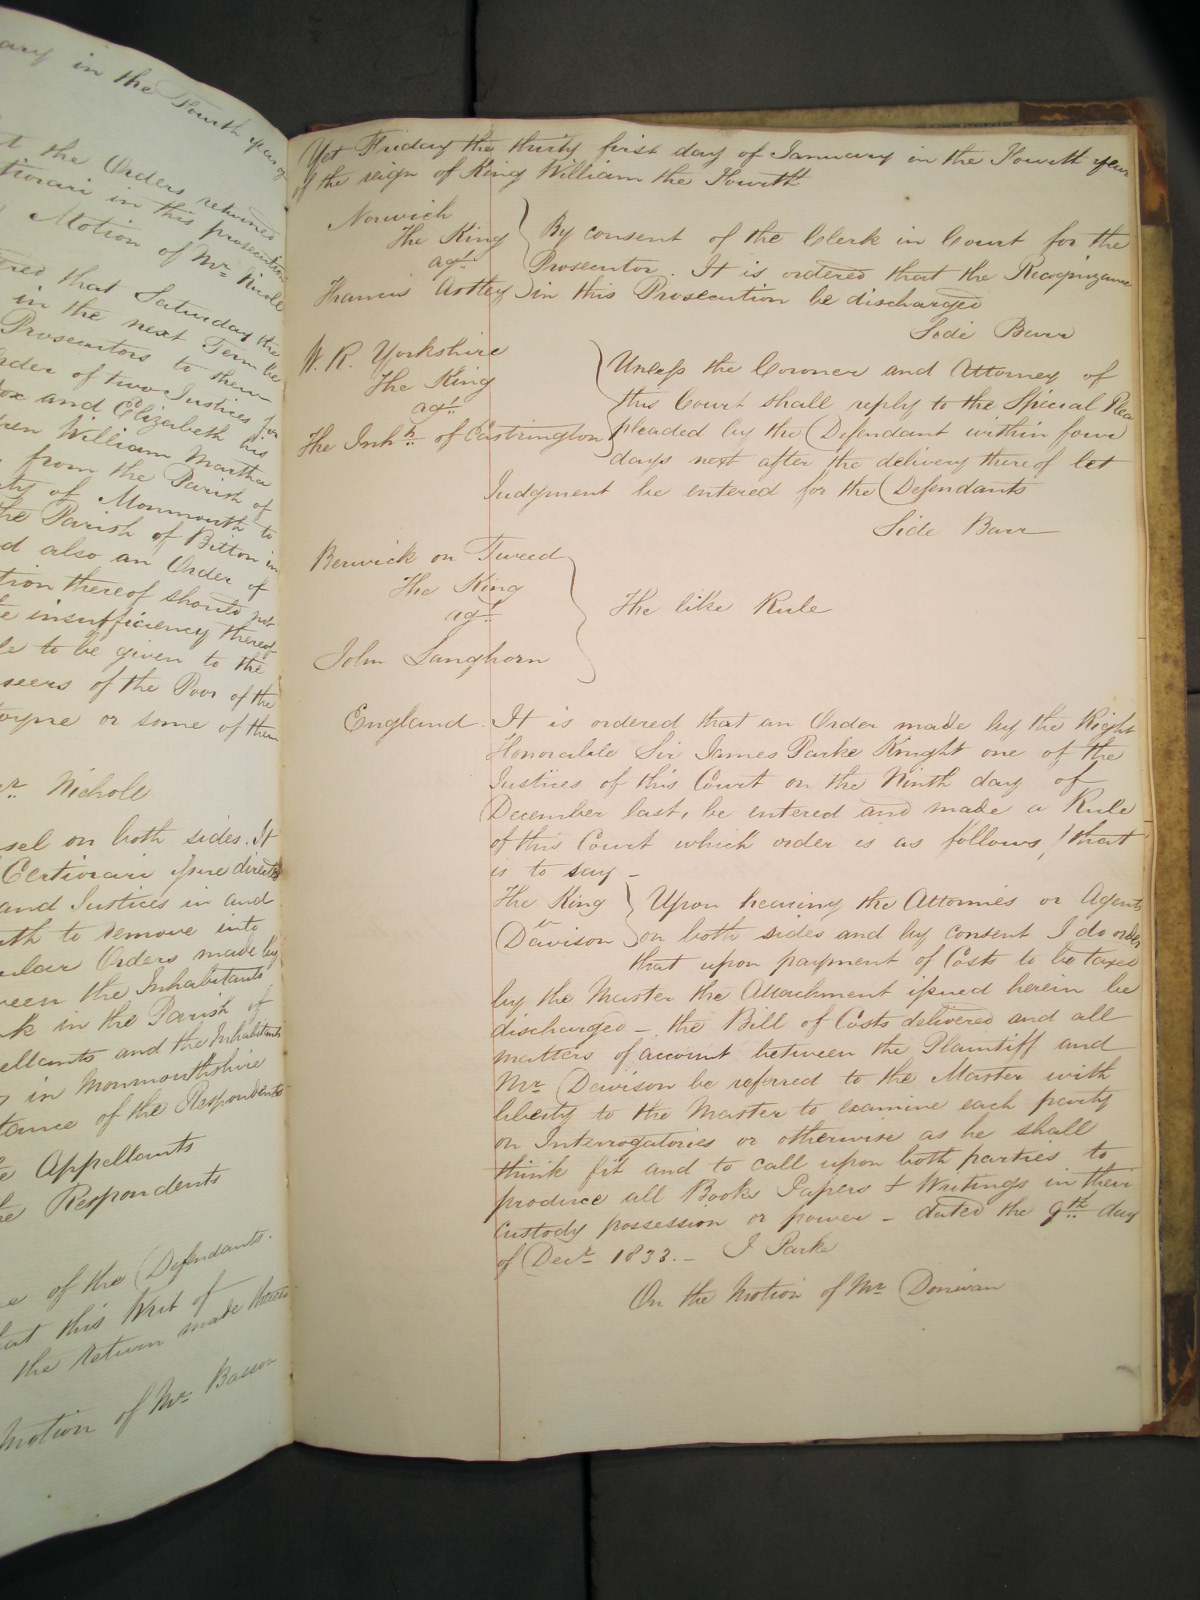 ary in the Fourth year of
t the Orders returned
tiorari in this prosecution
Motion of Mr. Nicholl
ered that Saturday the
in the next Term be
Prosecutors to shew
rder of two Justices for
ox and Elizabeth his
ren William Martha
from the Parish of
ty of Monmouth to
the Parish of Bitton in
d also an Order of
tion thereof should not
e insufficiency thereof
le to be given to the
seers of the Poor of the
or some of them
r. Nicholl
sel on both sides. It
Certiorari issue directed
and Justices in and
uth to remove into
ular Orders made by
ween the Inhabitants
k in the Parish of
ellants and the Inhabitants
in Monmouthshire
tance of the Respondents
e Appellants
he Respondents
e of the Defendants.
hat this Writ of
the Return made thereto
Motion of Mr.
Yet Friday the thirty first day of January in the Fourth year
of the reign of King William the Fourth
Norwich
The King
agt.
Francis Astley
By consent of the Clerk in Court for the
Prosecutor. It is ordered that the Recognizance
in this Prosecution be discharged
Side Barr
W. R. Yorkshire
The King
agt.
The Inhts. of Eastrington
Unless the Coroner and Attorney of
this Court shall reply to the Special Plea
pleaded by the Defendant within four
days next after the delivery thereof let
Judgment be entered for the Defendants
Side Barr
Berwick on Tweed
The King
agt.
John Langhorn
The like Rule
England. It is ordered that an Order made by the Right
Honorable Sir James Parke Knight one of the
Justices of this Court on the Ninth day of
December last, be entered and made a Rule
of this Court which order is as follows, that
is to say -
The King
v
Davison
Upon hearing the Attornies or Agents
on both sides and by consent I do order
that upon payment of Costs to be taxed
by the Master the Attachment issued herein be
discharged - the Bill of Costs delivered and all
matters of account between the Plaintiff and
Mr. Davison be referred to the Master with
liberty to the Master to examine each party
on Interrogatories or otherwise as he shall
think fit and to call upon both parties to
produce all Books Papers & Writings in their
custody possession or power - dated the 9th. day
of Decr. 1833. - J Parke
On the Motion of Mr. Donivan